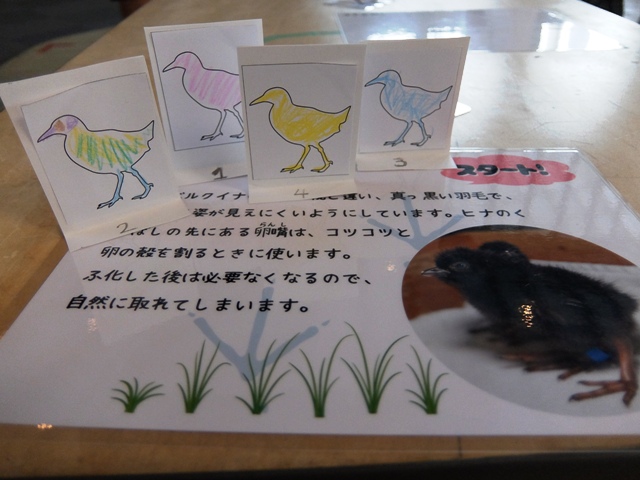 スタート!
ルクイナ 違い、真っ黒い羽毛で、
姿が見えにくいようにしています。ヒナのく
ばしの先にある卵嘴は、コツコツと
らんし
卵の殻を割るときに使います。
ふ化した後は必要なくなるので、
自然に取れてしまいます。
1
2
3
4